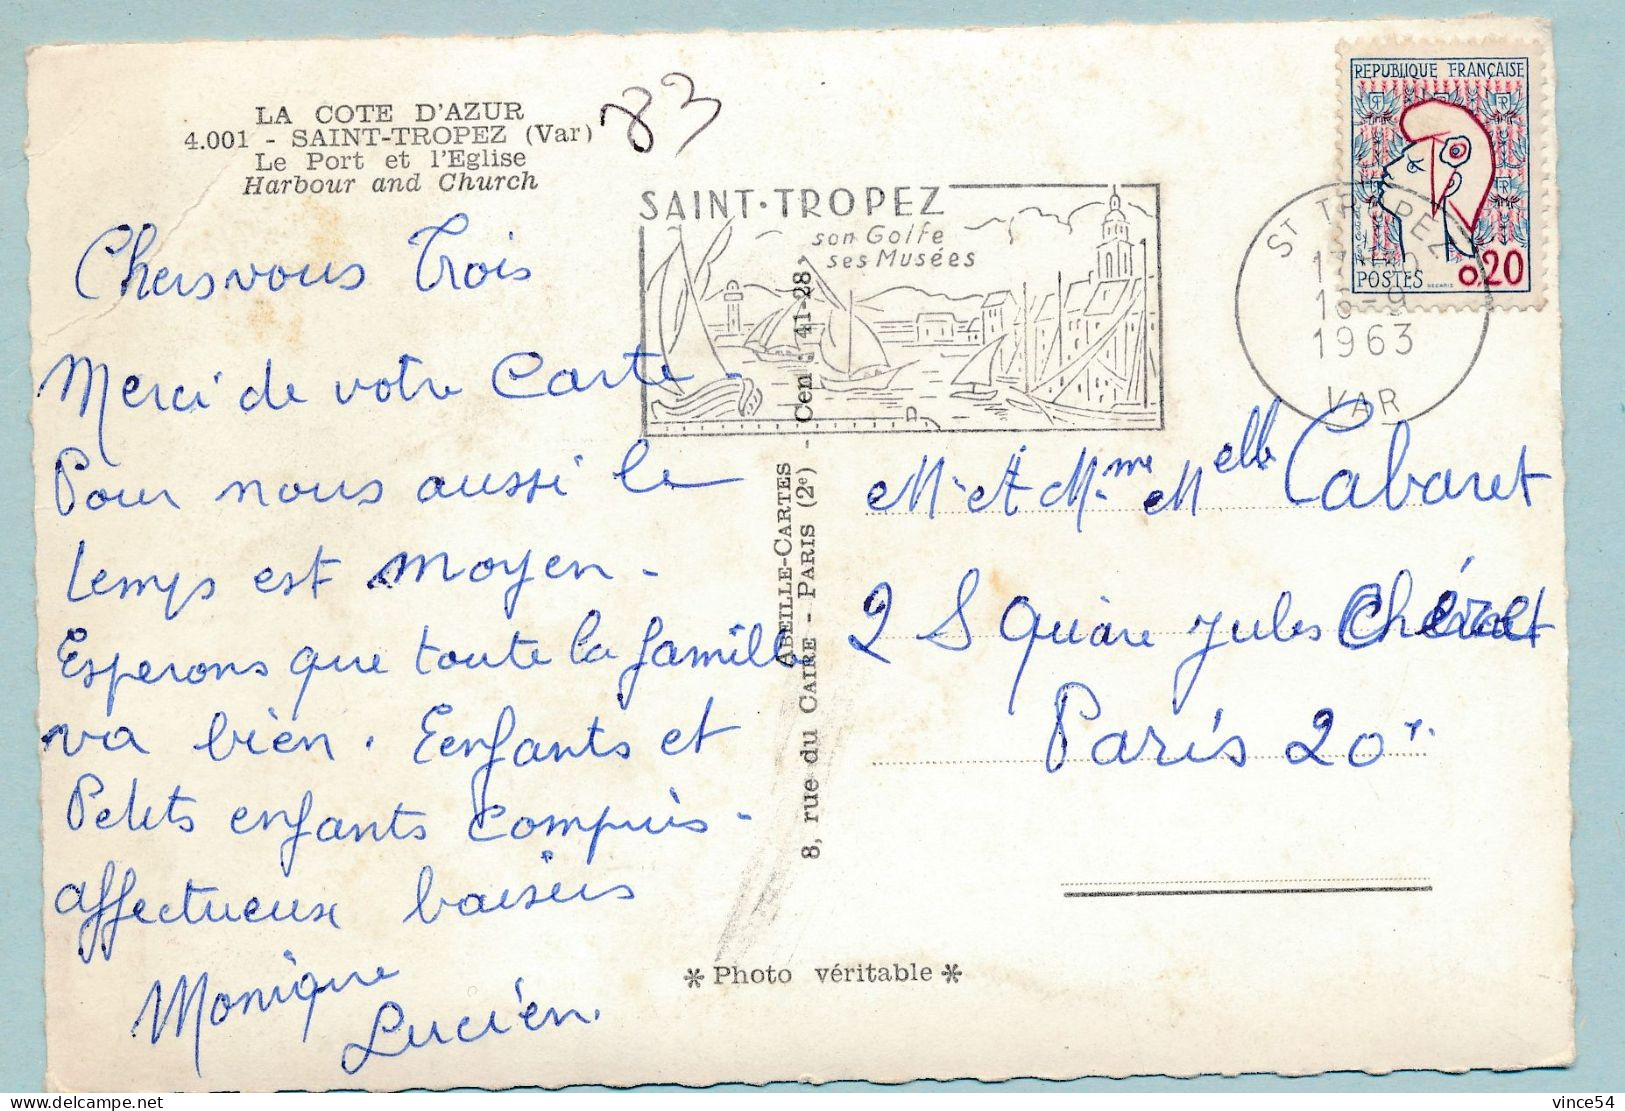 LA COTE D'AZUR
4.001 - SAINT-TROPEZ (Var)
Le Port et l'Eglise
Harbour and Church
83
SAINT·TROPEZ
son Golfe
ses Musées
REPUBLIQUE FRANÇAISE
POSTES
0.20
DECARIS
ST TROPEZ
1963
VAR
Chers vous Trois
Merci de votre Carte -
Pour nous aussi le
temps est moyen -
Esperons que toute la famille
va bien. Eenfants et
Petits enfants compris -
affectueux baisers
Monique
Lucien.
ABEILLE-CARTES
8, rue du CAIRE - PARIS (2e) - Cen : 41-28
M. et M.me Melle Cabaret
2 Square Jules Chéret
Paris 20e.
* Photo véritable *
delcampe.net
vince54